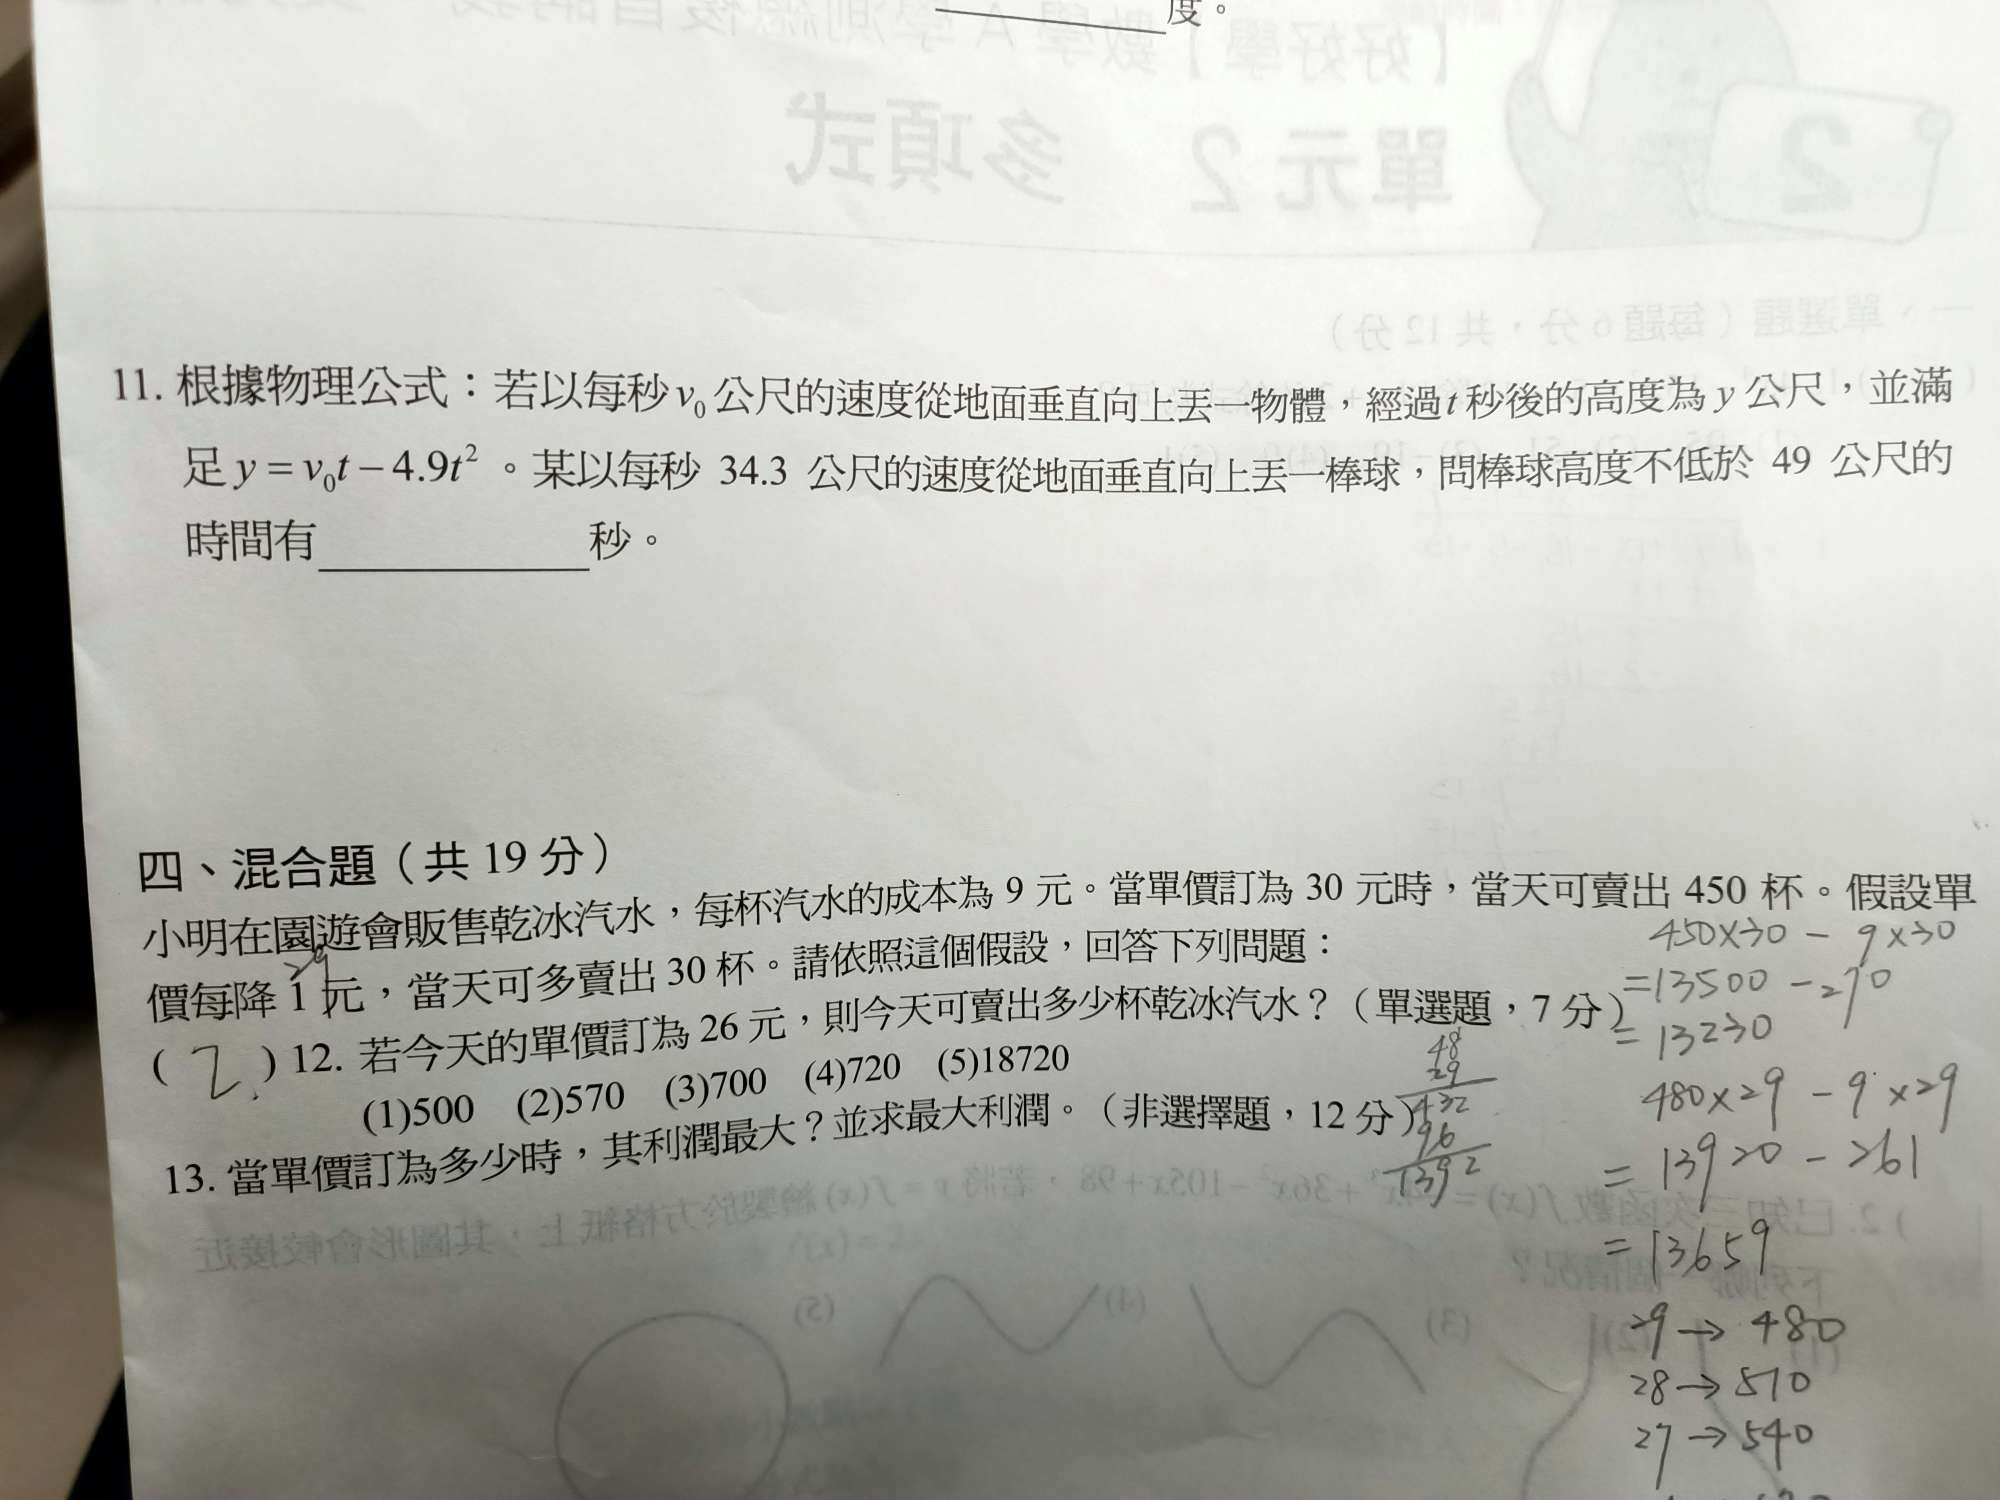 度。
11. 根據物理公式：若以每秒 v₀ 公尺的速度從地面垂直向上丟一物體，經過 t 秒後的高度為 y 公尺，並滿
足 y = v₀t − 4.9t² 。某以每秒 34.3 公尺的速度從地面垂直向上丟一棒球，問棒球高度不低於 49 公尺的
時間有＿＿＿＿＿＿秒。
四、混合題（共 19 分）
小明在園遊會販售乾冰汽水，每杯汽水的成本為 9 元。當單價訂為 30 元時，當天可賣出 450 杯。假設單
價每降 1 元，當天可多賣出 30 杯。請依照這個假設，回答下列問題：
29
( 2 ) 12. 若今天的單價訂為 26 元，則今天可賣出多少杯乾冰汽水？（單選題，7 分）
(1)500 (2)570 (3)700 (4)720 (5)18720
13. 當單價訂為多少時，其利潤最大？並求最大利潤。（非選擇題，12 分）
48
29
432
96
1392
450×30 − 9×30
=13500 − 270
= 13230
480×29 − 9×29
= 13920 − 261
= 13659
29 → 480
28 → 510
27 → 540
【好好學】數學 A 學測總複習
單元 2 多項式
2
一、單選題（每題 6 分，共 12 分）
2. 已知三次函數 f(x) =
+36x²−105x+98，若將 y = f(x) 繪製於方格紙上，其圖形會較接近
(3)
(4)
(5)